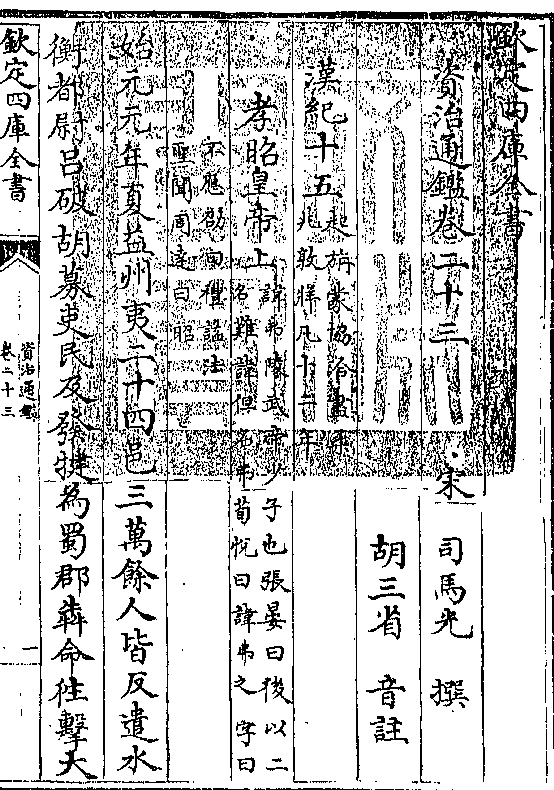 欽定四庫全書
資治通鑑卷二十三 宋 司馬光 撰
胡三省 音註
漢紀十五 起旃蒙協洽盡柔
兆敦牂凡十二年
孝昭皇帝上 諱弗陵武帝少子也張晏曰後以二
名難諱但名弗荀悅曰諱弗之字曰
不應劭曰禮諡法
聖聞周達曰昭
始元元年夏益州夷二十四邑三萬餘人皆反遣水
衡都尉呂破胡募吏民及發犍為蜀郡犇命往擊大
欽定四庫全書
資治通鑑
卷二十三
一